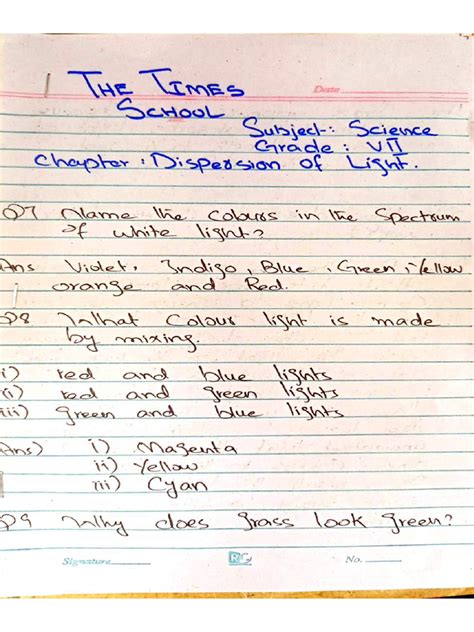 THE TIMES
Date
SCHOOL
Subject: Science
Grade : VII
Chapter : Dispersion of Light.
Q7 Name the colours in the Spectrum
of white light?
Ans Violet, Indigo, Blue, Green, Yellow
orange and Red.
Q8 What Colour light is made
by mixing.
i) red and blue lights
ii) red and green lights
iii) green and blue lights
Ans) i) Magenta
ii) Yellow
iii) Cyan
Q9 Why does grass look green?
Signature RG No.